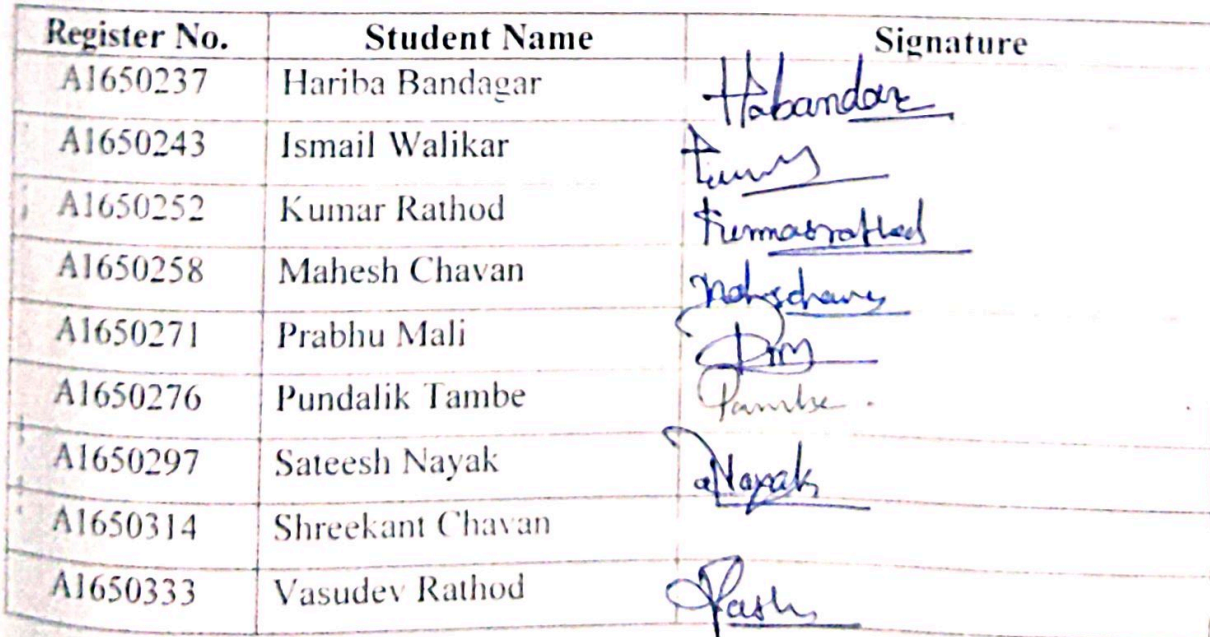 Register No. Student Name Signature
A1650237 Hariba Bandagar Habandar
A1650243 Ismail Walikar
A1650252 Kumar Rathod Kumarrathod
A1650258 Mahesh Chavan
A1650271 Prabhu Mali
A1650276 Pundalik Tambe Tambe.
A1650297 Sateesh Nayak Nayak
A1650314 Shreekant Chavan
A1650333 Vasudev Rathod